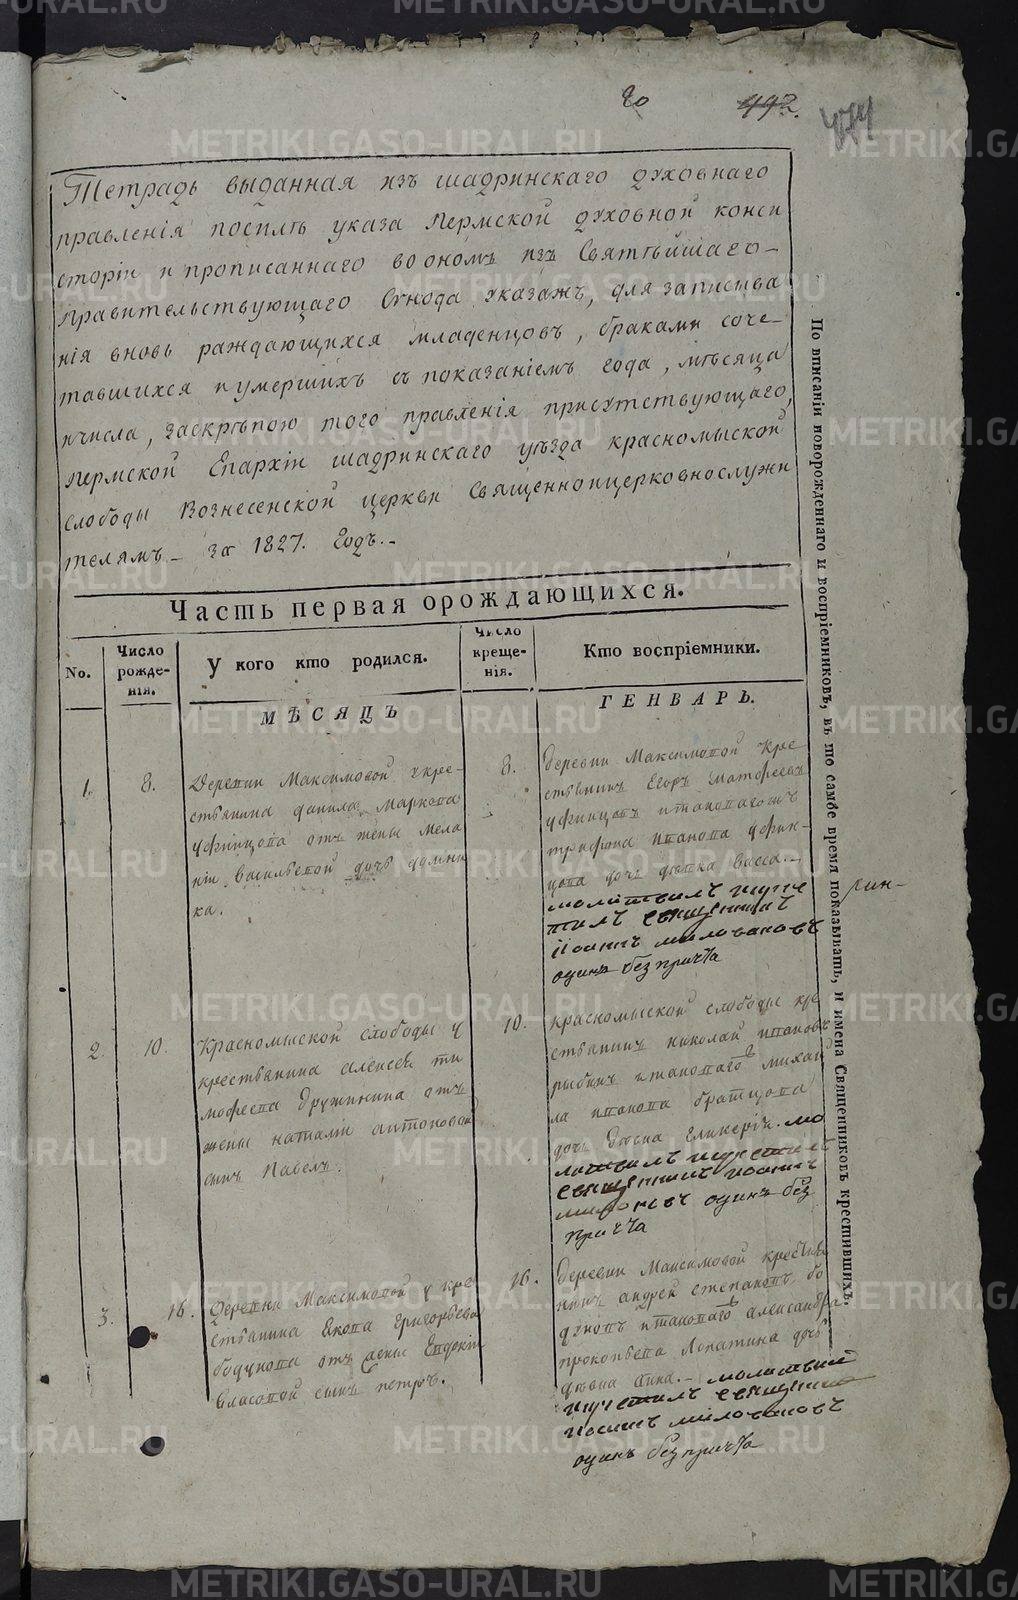 80
492.
474
Тетрадь выданная изъ шадринскаго духовнаго
правленія посилѣ указа пермской духовной конси
сторіи и прописаннаго во ономъ изъ Святѣйшаго
правительствующаго Сѵнода указахъ, для записыва
нія вновь раждающихся младенцовъ, браками соче-
тавшихся и умершихъ съ показаніемъ года, мѣсяца
и числа, заскрѣпою того правленія присутствующаго,
пермской Епархіи шадринскаго уѣзда красномыской
слободы Вознесенской церкви Священноицерковнослужи
телямъ - за 1827. Годъ.-
Часть первая орождающихся.
No.
Число рожде- нія.
У кого кто родился.
Число креще- нія.
Кто воспріемники.
МѢСЯЦЪ
ГЕНВАРЬ.
1.
8.
Деревни Максимовой укре-
стьянина данила маркова
уфинцова отъ жены мела
ніи васильевой дочь домни
ка.
8.
деревни Максимовой кре
стьянинъ Егоръ матофеевъ
уфинцовъ итаковагожъ
трифона иванова уфин-
цова дочь девка васса.-
молитвилъ икрес
тилъ священникъ
Иоаннъ миловановъ
одинъ безпричта
2.
10.
Красномыской слободы у
крестьянина алексея ти
мофеева дружинина отъ
жены наталіи антоновой
сынъ Павелъ.
10.
красномыской слободы кре
стьянинъ николай ивановъ
рыбинъ итаковагожъ михай
ла иванова братцова
дочь девка гликеріи. мо
литвилъ икрестилъ
священникъ иоаннъ
миловановъ одинъ без
причта
3.
16.
Деревни Максимовой у кре
стьянина Якова Григорьева
бодунова отъ жены Евдокіи
власовой сынъ петръ.
16.
деревни Максимовой крестья
нинъ андрей степановъ бо
дуновъ итаковагожъ александра
прокопьева Лопатина дочь
девка анна.- молитвилъ
икрестилъ священникъ
иоаннъ миловановъ
одинъ безпричта
По вписаніи новорожденнаго и воспріемниковъ, въ то самое время показывать, и имена Священниковъ крестившихъ.
METRIKI.GASO-URAL.RU